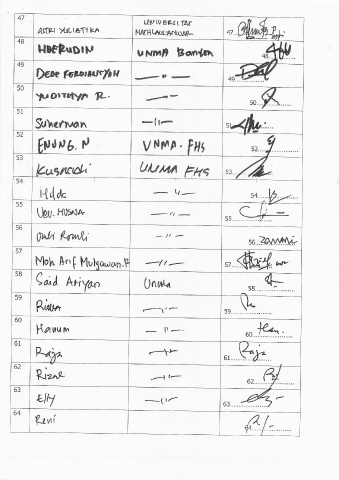 47 ASTRI YULISTIKA UNIVERSITAS MATHLAUL ANWAR 47
48 HAERUDIN UNMA Banten 48
49 DEDE FERDIANSYAH —〃— 49
50 YUDITHYA R. —〃— 50
51 Suherman —〃— 51
52 ENUNG. N UNMA. FHS 52
53 Kusnadi UNMA FHS 53
54 Hilda —〃— 54
55 HUSNA —〃— 55
56 Romli —〃— 56
57 Moh Arif Mulyawan. P —〃— 57
58 Said Ariyan Unma 58
59 Rima —〃— 59
60 Hanum —〃— 60 Han.
61 Raja —〃— 61 Raja
62 Rizal —〃— 62
63 Elly —〃— 63
64 Reni 64